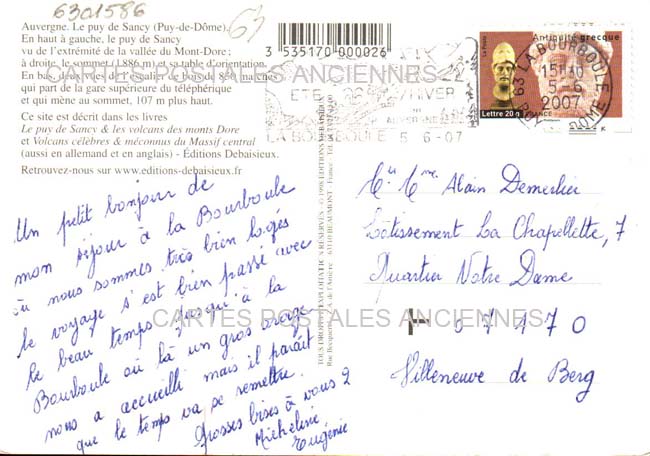 6301586
63
Auvergne. Le puy de Sancy (Puy-de-Dôme).
En haut à gauche, le puy de Sancy
vu de l'extrémité de la vallée du Mont-Dore ;
à droite, le sommet (1886 m) et sa table d'orientation
En bas, départ de l'escalier de bois de 850 marches
qui part de la gare supérieure du téléphérique
et qui mène au sommet, 107 m plus haut.
Ce site est décrit dans les livres
Le puy de Sancy & les volcans des monts Dore
et Volcans célèbres & méconnus du Massif central
(aussi en allemand et en anglais) - Éditions Debaisieux.
Retrouvez-nous sur www.editions-debaisieux.fr
3 535170 000026
ETE HIVER
AUVERGNE
LA BOURBOULE 5 6-07
La Poste
Antiquité grecque
Lettre 20 g
FRANCE
63 LA BOURBOULE
15H10
5-6
2007
DOME
CARTES POSTALES ANCIENNES
Un petit bonjour de
mon séjour à la Bourboule
où nous sommes très bien logés
le voyage s'est bien passé avec
le beau temps jusqu'à la
Bourboule où là un gros orage
nous a accueilli mais il paraît
que le temps va se remettre.
Grosses bises à vous 2
Micheline
Eugénie
TOUS DROITS D'EXPLOITATION RÉSERVÉS - © 1998 EDITIONS DEBAISIEUX
63110 BEAUMONT - France
Mr Mme Alain Demerlier
Lotissement La Chapellette, 7
Quartier Notre Dame
07170
Villeneuve de Berg
CARTES POSTALES ANCIENNES